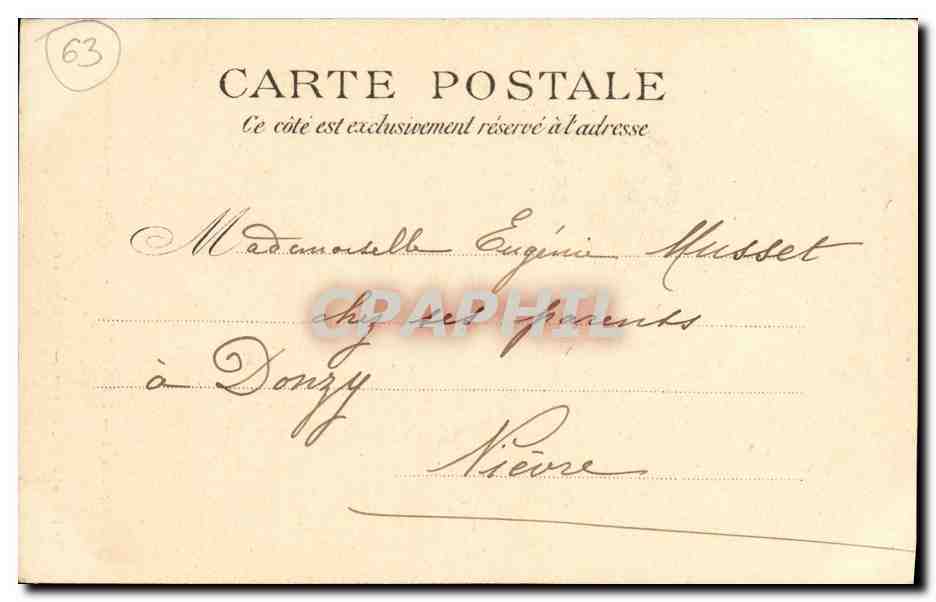 63
CARTE POSTALE
Ce côté est exclusivement réservé à l'adresse
Mademoiselle Eugénie Musset
CPAPHIL
chez ses parents
à Donzy
Nièvre